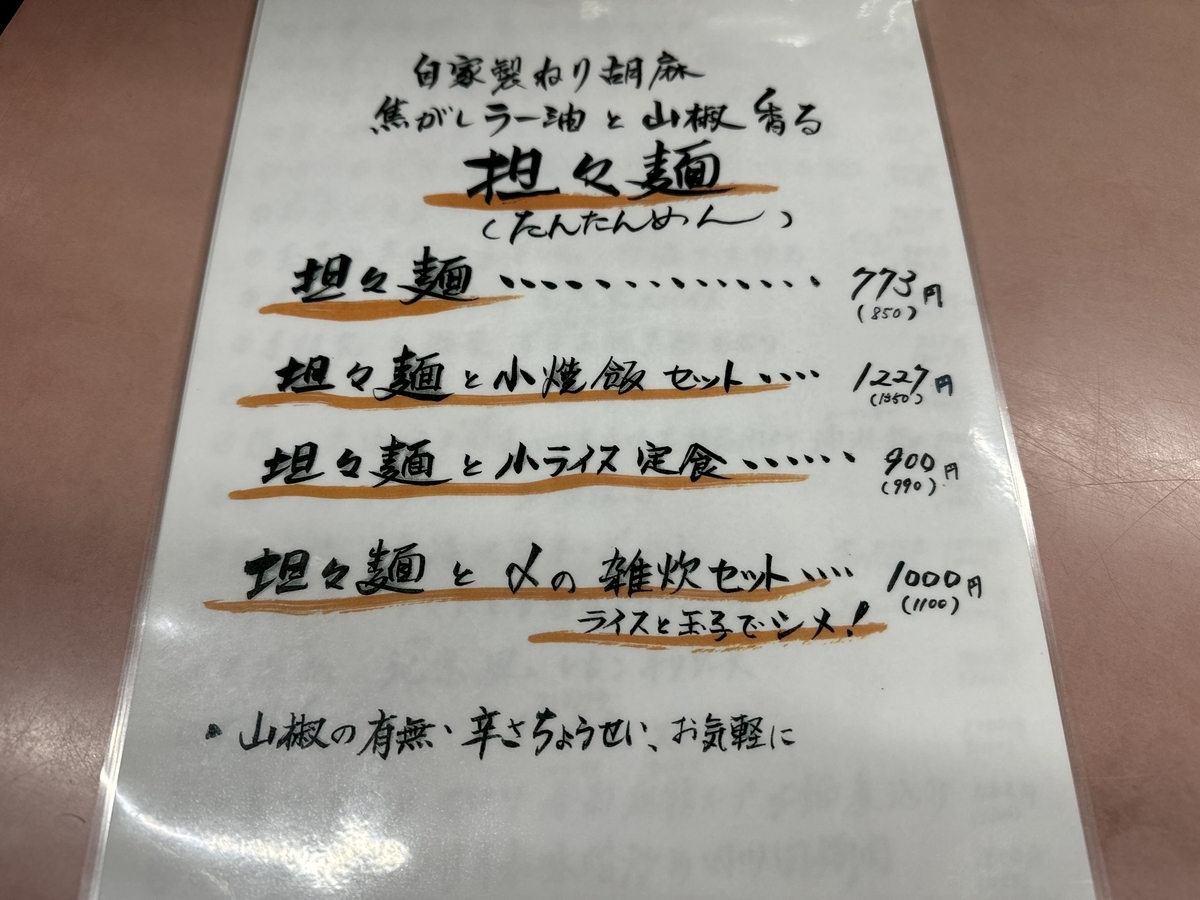 自家製ねり胡麻
焦がしラー油と山椒香る
担々麺
(たんたんめん)
坦々麺・・・・・・・・・・・・・・ 773円
(850)
坦々麺と小焼飯セット・・・・ 1227円
(1350)
坦々麺と小ライス定食・・・・・・ 900円
(990)
坦々麺と〆の雑炊セット・・・・ 1000円
(1100)
ライスと玉子でシメ!
・山椒の有無・辛さちょうせい、お気軽に